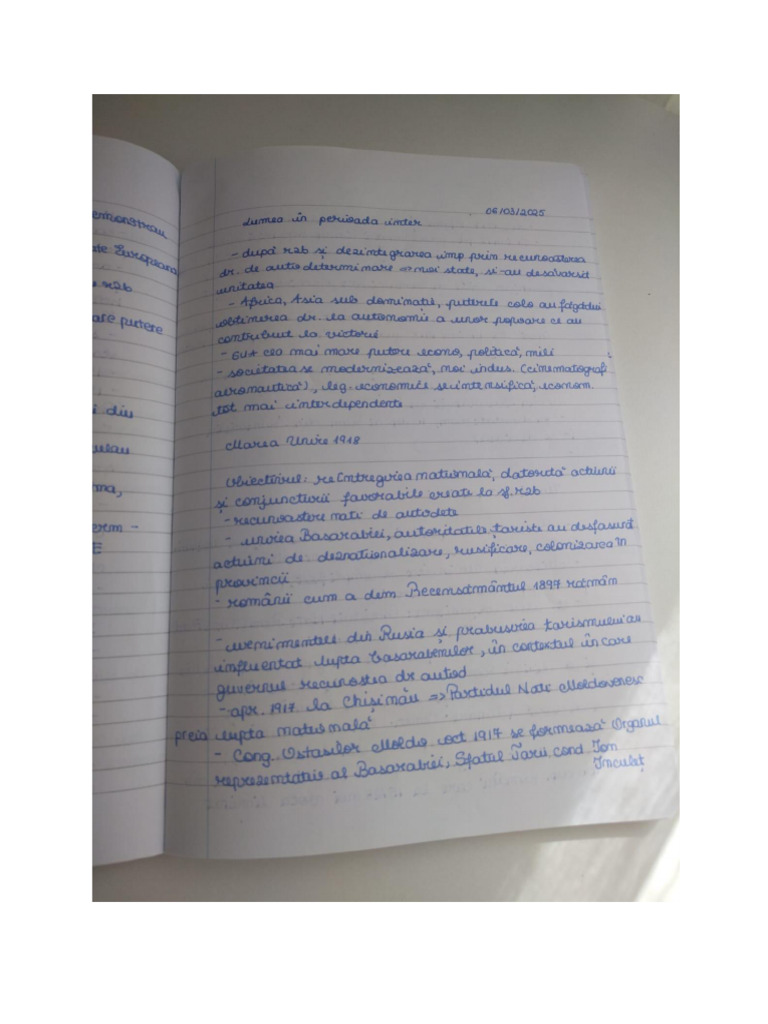 emonstrau
te Europeana
e răb
are putere
i din
ulau
ma,
erm -
E
06/03/2025
Lumea în perioada inter
- după răb și dezintegrarea imp prin recunoașterea
dr. de autodeterminare => noi state, si-au desăvarsit
unitatea
- Africa, Asia sub dominație, puterile colo au făgăduit
obtinerea dr. la autonomie a unor popoare ce au
contribuit la victorii
- SUA cea mai mare putere econo, politică, mili
- societatea se modernizează, noi indus. (cinematograf
aeronautică), leg. economice se intensifică, econom.
tot mai interdependente
Marea Unire 1918
Obiectivul: reîntregirea natională, datorită actiunii
și conjuncturii favorabile create la sf. răb
- recunoastere nati de autodete
- unirea Basarabiei, autoritatile țariste au desfasurat
actiuni de deznationalizare, rusificare, colonizarea în
provincii
- românii cum a dim Recensământul 1897 rămân
- evenimentele din Rusia și prabusirea tarismului au
influentat lupta basarabenilor, în contextul în care
guvernul recunostea dr autod
- apr. 1917 la Chișinău => Partidul Nati Moldovenesc
preia lupta natională
- Cong. Ostasilor Moldo oct 1917 se formează Organul
reprezentativ al Basarabiei, Sfatul Țării, cond Ion
Inculeț